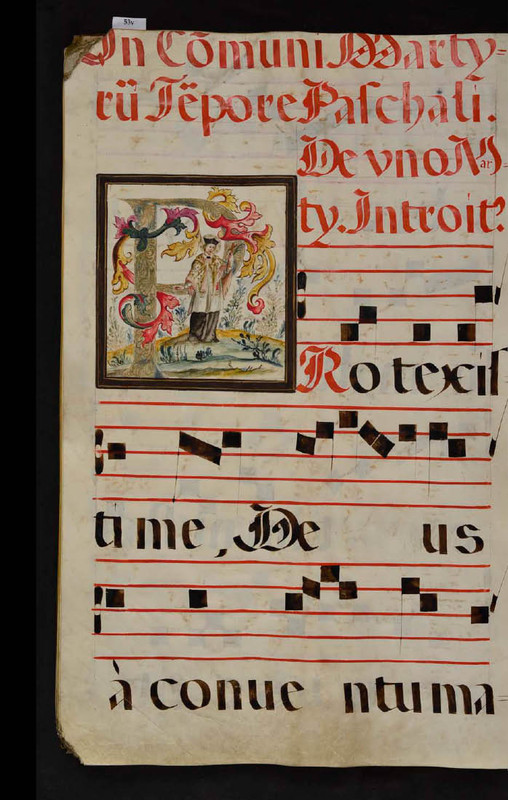 53v
In Cõmuni Marty-
rũ Tẽpore Paschali.
De vno Mar-
ty. Introit⁹
PRotexis
time, De us
à conue ntu ma-